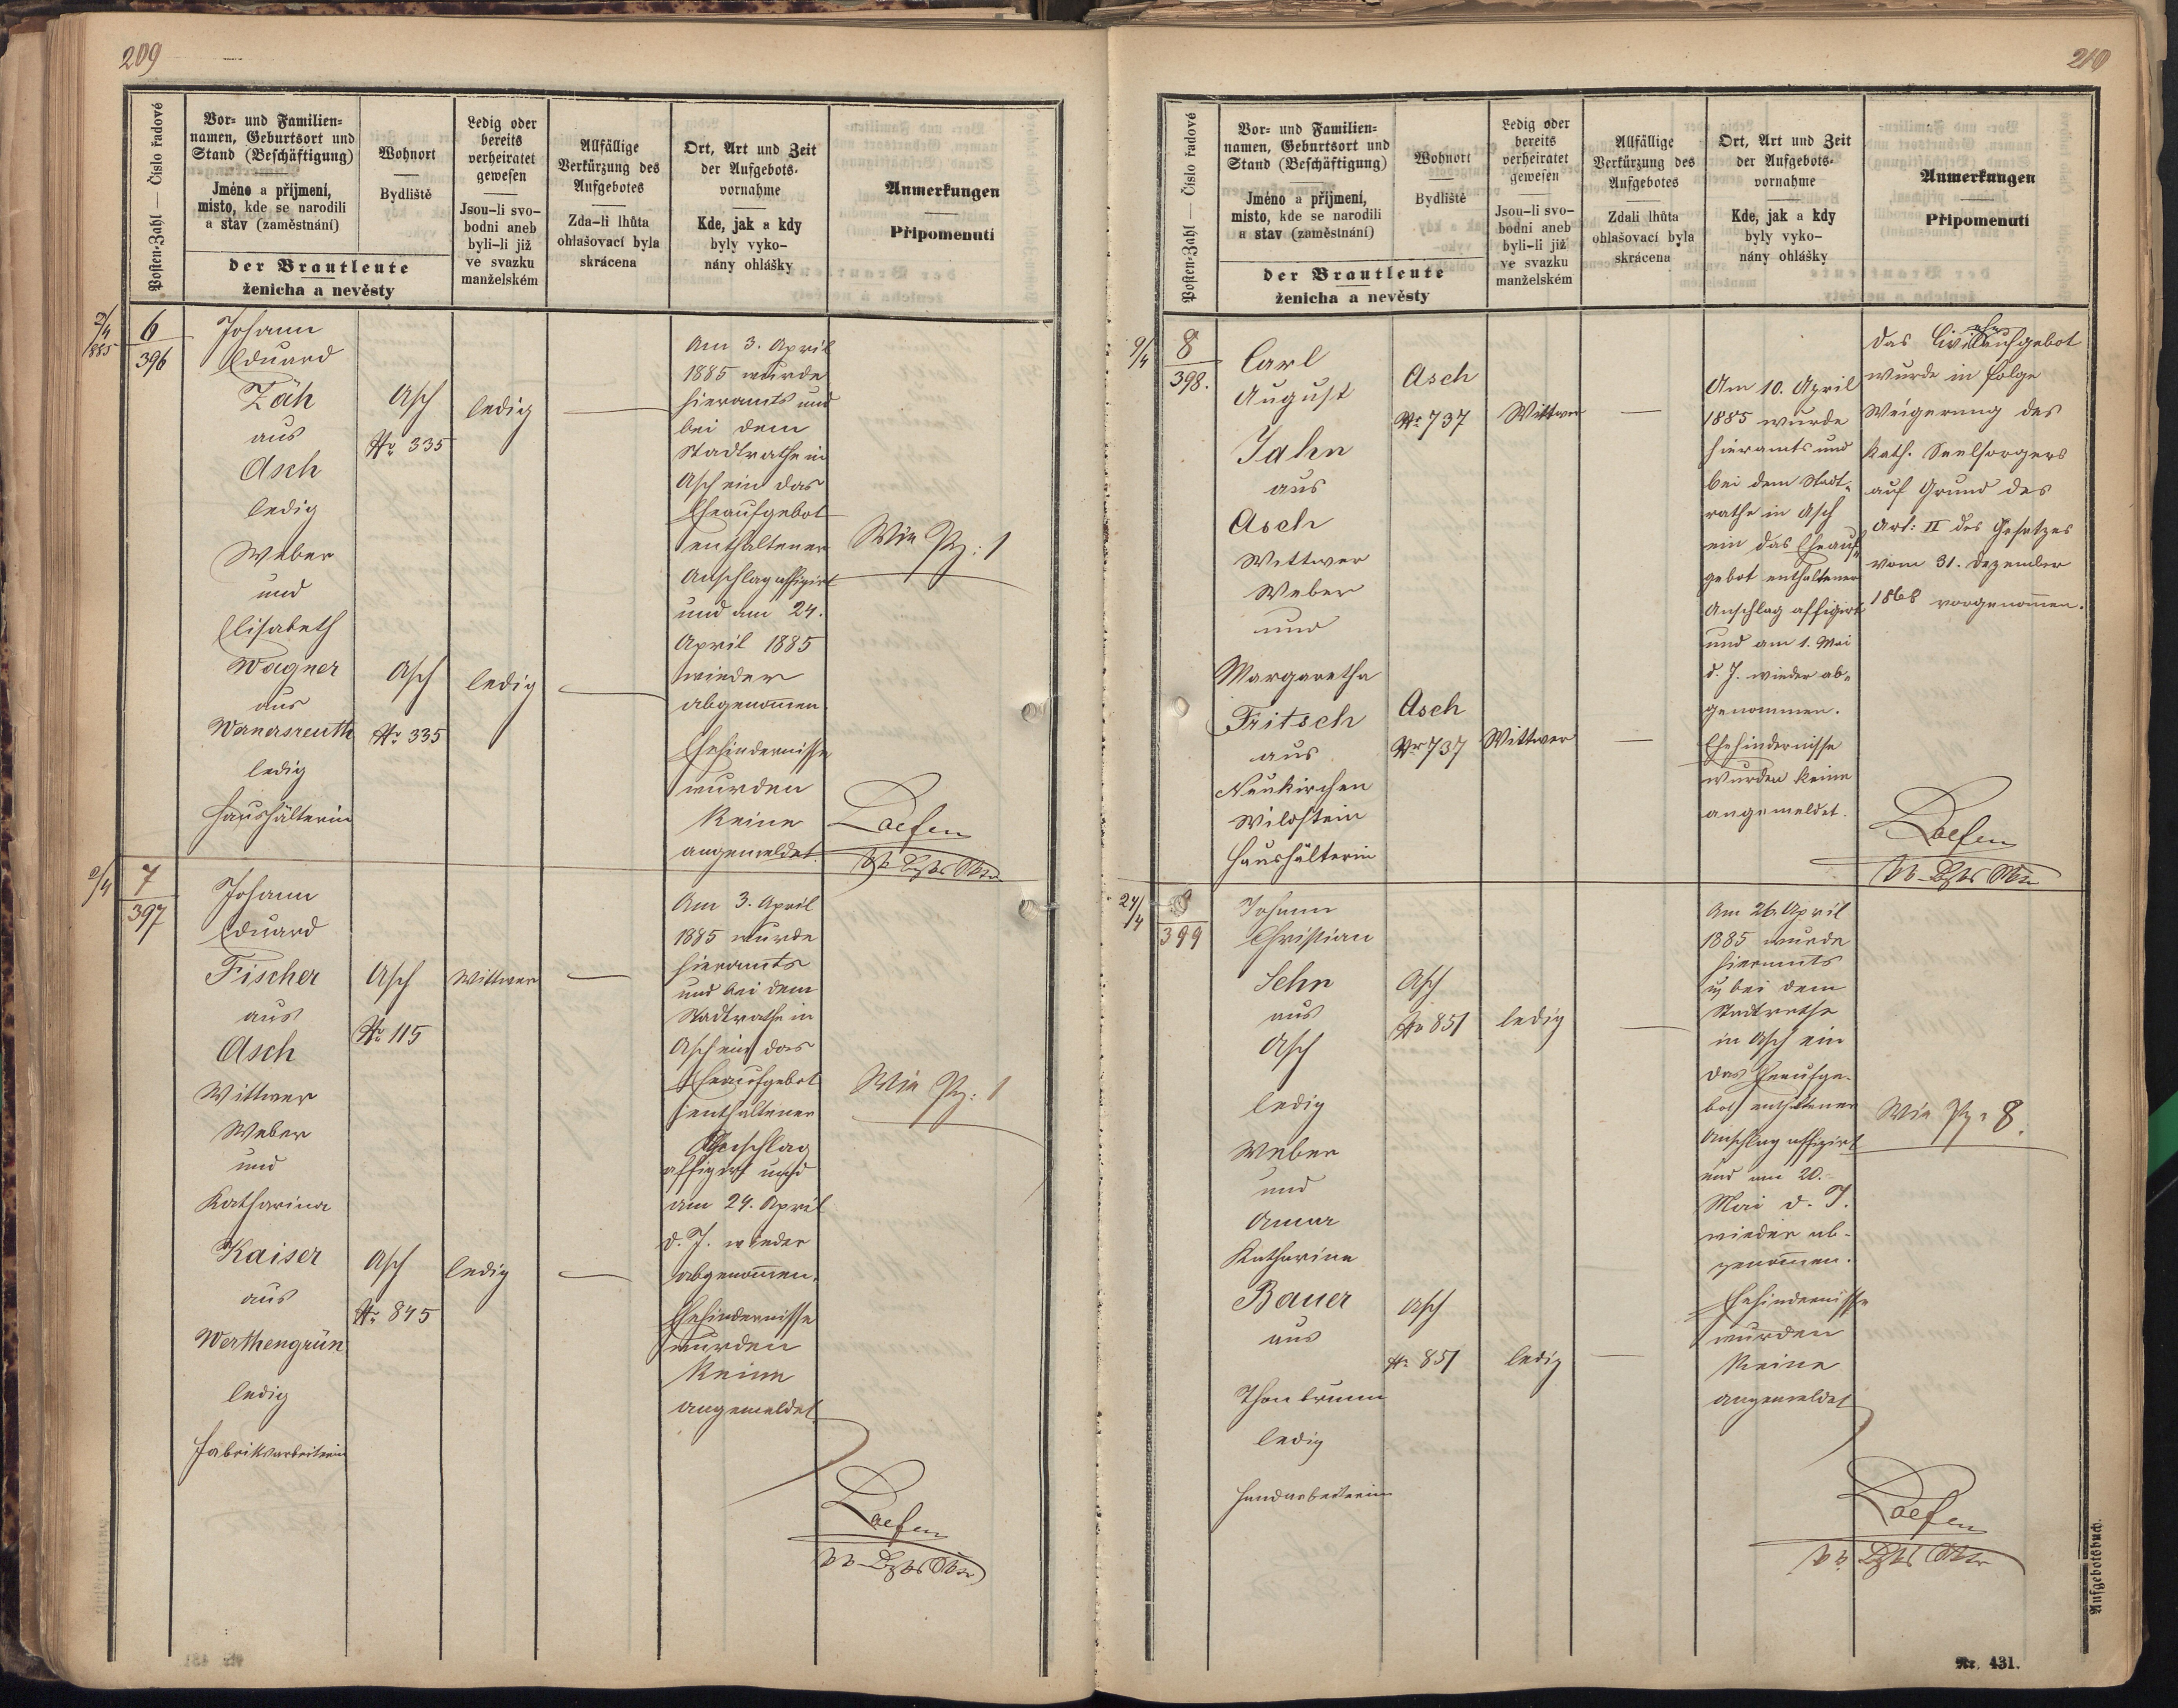 209
Posten-Zahl — Číslo řadové
Vor- und Familien-
namen, Geburtsort und
Stand (Beschäftigung)
Jméno a příjmení,
místo, kde se narodili
a stav (zaměstnání)
Wohnort
Bydliště
der Brautleute
ženicha a nevěsty
Ledig oder
bereits
verheiratet
gewesen
Jsou-li svo-
bodni aneb
byli-li již
ve svazku
manželském
Allfällige
Verkürzung des
Aufgebotes
Zda-li lhůta
ohlašovací byla
skrácena
Ort, Art und Zeit
der Aufgebots-
vornahme
Kde, jak a kdy
byly vyko-
nány ohlášky
Anmerkungen
Připomenutí
2/4
885
6
396
Johann
Eduard
Zäh
aus
Asch
ledig
Weber
und
Elisabeth
Wagner
aus
Wernersreuth
ledig
Haushälterin
Asch
Nr 335
Asch
Nr 335
ledig
ledig
Am 3. April
1885 wurde
hieramts und
bei dem
Stadtrathe in
Asch ein das
Eheaufgebot
enthaltener
Anschlag affigirt
und am 24.
April 1885
wieder
abgenommen.
Ehehindernisse
wurden
keine
angemeldet.
Wie Pz: 1
2/4
7
397
Johann
Eduard
Fischer
aus
Asch
Wittwer
Weber
und
Katharina
Kaiser
aus
Werthengrün
ledig
Fabriksarbeiterin
Asch
Nr 115
Asch
Nr 845
Wittwer
ledig
Am 3. April
1885 wurde
hieramts
und bei dem
Stadtrathe in
Asch ein das
Eheaufgebot
enthaltener
Anschlag
affigirt und
am 24. April
d. J. wieder
abgenommen.
Ehehindernisse
wurden
keine
angemeldet.
Wie Pz: 1
210
Posten-Zahl — Číslo řadové
Vor- und Familien-
namen, Geburtsort und
Stand (Beschäftigung)
Jméno a příjmení,
místo, kde se narodili
a stav (zaměstnání)
Wohnort
Bydliště
der Brautleute
ženicha a nevěsty
Ledig oder
bereits
verheiratet
gewesen
Jsou-li svo-
bodni aneb
byli-li již
ve svazku
manželském
Allfällige
Verkürzung des
Aufgebotes
Zdali lhůta
ohlašovací byla
skrácena
Ort, Art und Zeit
der Aufgebots-
vornahme
Kde, jak a kdy
byly vyko-
nány ohlášky
Anmerkungen
Připomenutí
9/4
8
398.
Carl
August
Jahn
aus
Asch
Wittwer
Weber
und
Margaretha
Fritsch
aus
Neukirchen
Wildstein
Haushälterin
Asch
Nr 737
Asch
Nr 737
Wittwer
Wittwer
Am 10. April
1885 wurde
hieramts und
bei dem Stadt-
rathe in Asch
ein das Eheauf-
gebot enthaltener
Anschlag affigirt
und am 1. Mai
d. J. wieder ab-
genommen.
Ehehindernisse
wurden keine
angemeldet.
Das Civileheaufgebot
wurde in Folge
Weigerung des
kath. Seelsorgers
auf Grund des
Art: II des Gesetzes
vom 31. Dezember
1868 vorgenommen.
24/4
399
Johann
Christian
Sehn
aus
Asch
ledig
Weber
und
Anna
Katharina
Bauer
aus
Thonbrunn
ledig
Handarbeiterin
Asch
Nr 851
Asch
Nr 851
ledig
ledig
Am 26. April
1885 wurde
hieramts
u. bei dem
Stadtrathe
in Asch ein
das Eheaufge-
bot enthaltener
Anschlag affigirt
und am 20.
Mai d. J.
wieder ab-
genommen.
Ehehindernisse
wurden
keine
angemeldet
Wie Pz. 8.
Aufgebotsbuch.
Nr. 431.